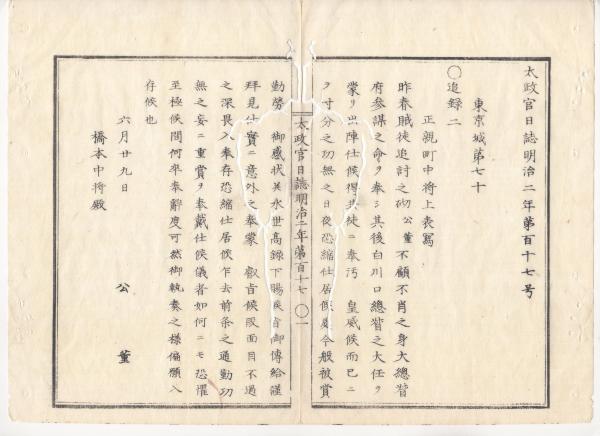 太政官日誌明治二年第百十七号
東京城第七十
〇追録二
正親町中将上表寫
昨春賊徒追討之砌公董不顧不肖之身大總督
府參謀之命ヲ奉シ其後白川口總督之大任ヲ
蒙リ出陣仕候得共徒ニ奉汚 皇威候而已ニ
ヲ寸分之功無之日夜恐縮仕居候處今般被賞
太政官日誌明治二年第百十七 〇一
勤勞 御感狀其永世高録下賜候旨御傳給謹
拜見仕實ニ意外之奉蒙 叡旨候段面目不過
之深畏入奉存恐縮仕居候乍去前条之通勤功
無之妄ニ重賞ヲ奉戴仕候儀者如何ニモ恐懼
至極候間何卒奉辭度可然御執奏之様偏願入
存候也
六月廿九日 公董
橋本中将殿